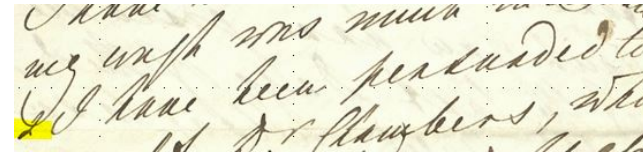 I have
my wish was much
& I have been persuaded to
of Dr Chambers, who